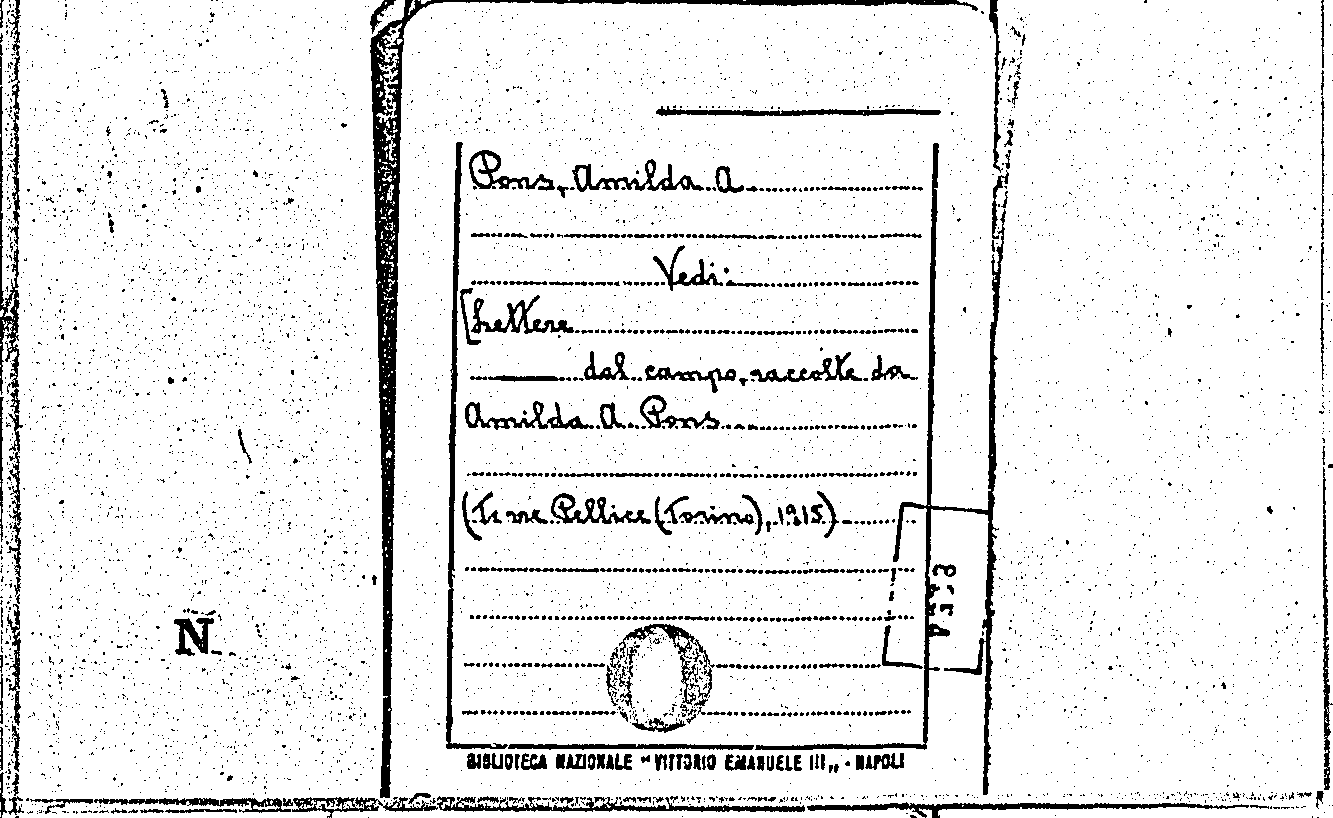 Pons, Amilda A.
Vedi:
[Lettere
dal campo, raccolte da
Amilda A. Pons
(Torre Pellice (Torino), 1915)
N
BIBLIOTECA NAZIONALE "VITTORIO EMANUELE III„ - NAPOLI